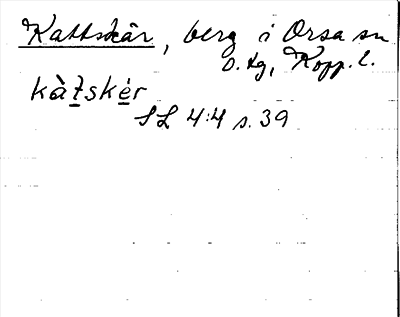 Kattskär, berg i Orsa sn
o. tg, Kopp. l.
kàt̲skė̲r
SL 4:4 s. 39